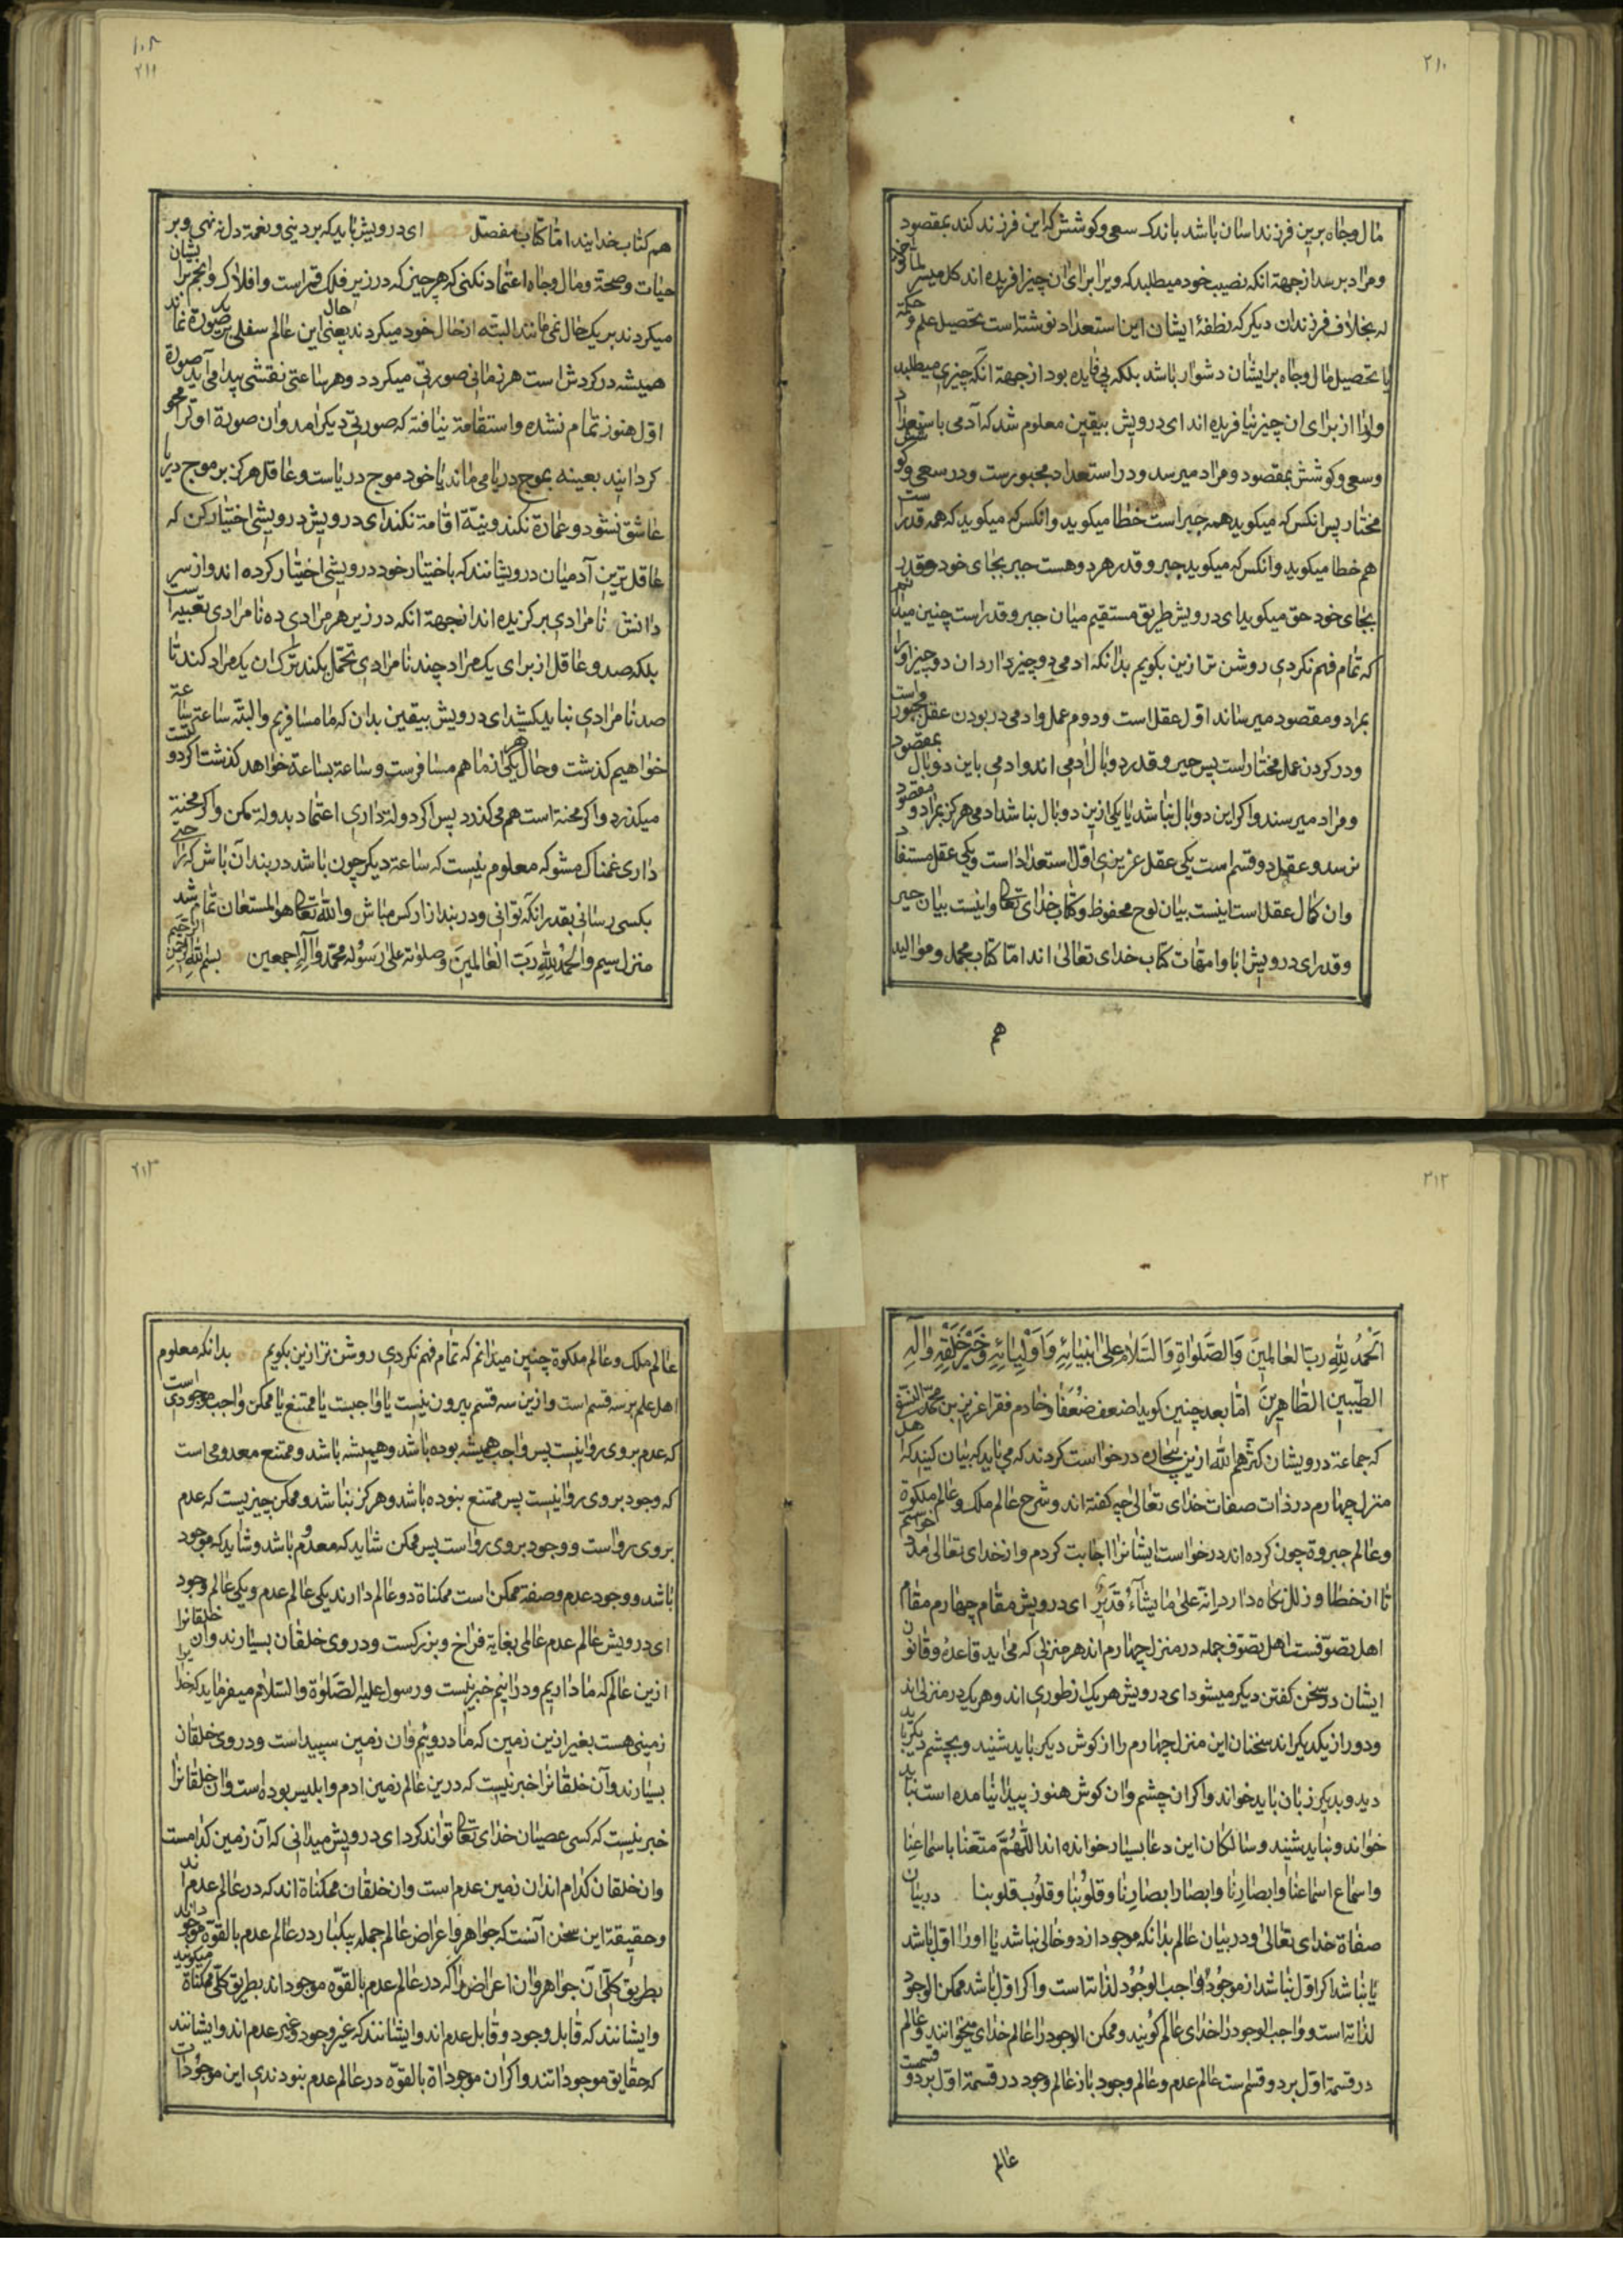 ۲۱۰
مال وجاه برین فرزند اسان باشد باندک سعی وکوشش که این فرزند کند بمقصود
ومراد برسد ازجهة انکه نصیب خود میطلبد که ویرا برای ان چیز افریده اند کل میسر لما خلق
له بخلاف فرزندان دیکر که نطفهٔ ایشان این استعداد نوشته است تحصیل علم وحکمة
یا تحصیل مال وجاه برایشان دشوار باشد بلکه بی فایده بود ازجهة انکه چیزی میطلبد
واورا از برای ان چیز نیافریده اند ای درویش بیقین معلوم شد که آدمی باستعداد
وسعی وکوشش بمقصود ومراد میرسد ودر استعداد مجبورست ودر سعی وکوشش
مختار پس انکس که میکوید همه جبر است خطا میکوید وانکس که میکوید که همه قدراست
هم خطا میکوید وانکس که میکوید جبر وقدر هردو هست جبر بجای خود وقدر
بجای خود حق میکوید ای درویش طریق مستقیم میان جبر وقدر است چنین میدانم
که تمام فهم نکردی روشن تر ازین بکویم بدانکه ادمی دو چیز دارد ان دو چیز اورا
بمراد ومقصود میرساند اول عقل است ودوم عمل وادمی در بودن عقل مجبور است
ودر کردن عمل مختار است پس جبر وقدر دو بال ادمی اند وادمی باین دو بال بمقصود
ومراد میرسند واکر این دو بال نباشد یا یکی ازین دو بال نباشد ادمی هرکز بمراد ومقصود
نرسد وعقل دو قسم است یکی عقل غریزی اول استعداد است ویکی عقل مستفاد
وان کمال عقل است اینست بیان لوح محفوظ وکتاب خدای تعالی واینست بیان جبر
وقدر ای درویش ابا وامهات کتاب خدای تعالی اند اما کتاب مجمل وموالید
هم
۱۰۵
۲۱۱
هم کتاب خدایند اما کتاب مفصل ای درویش باید که بر دنیی ونعمة دل ننهی وبر
حیات وصحة ومال وجاه اعتماد نکنی که هر چیز که در زیر فلک قمر است وافلاک وانجم برایشان
میکردند بر یک حال نمی مانند البته از حال خود میکردند یعنی حال این عالم سفلی بر یک صورة نماند
همیشه در کردش است هر زمانی صورتی میکردد وهر ساعتی نقشی پیدا می آید صورة
اول هنوز تمام نشده واستقامة نیافته که صورتی دیکر امد وان صورة اول را محو
کردانید بعینه بموج دریا می ماند یا خود موج دریاست وعاقل هرکز بر موج دریا
عاشق نشود وعمارة نکند ونیة اقامة نکند ای درویش درویشی اختیار کن که
عاقل ترین آدمیان درویشانند که باختیار خود درویشی اختیار کرده اند واز سر
دانش نامرادی برکزیده اند ازجهة انکه در زیر هر مرادی ده نامرادی تعبیه است
بلکه صد وعاقل از برای یک مراد چند نامرادی تحمل نکند ترک ان یک مراد کند تا
صد نامرادی نباید کشید ای درویش بیقین بدان که ما مسافریم والبته ساعة بساعة
خواهیم کذشت وحال هر یکی از ما هم مسافرست وساعة بساعة خواهد کذشت اکر دولتست
میکذرد واکر محنة است هم می کذرد پس اکر دولة داری اعتماد بدولة مکن واکر محنة
داری غمناک مشو که معلوم نیست که ساعة دیکر چون باشد در بند آن باش که راحتی
بکسی رسانی بقدر انکه توانی ودر بند ازار کس مباش والله تعالی هو المستعان تمام شد
منزل سیم والحمد لله رب العالمین وصلوته علی رسوله محمد وآله اجمعین بسم الله الرحمن الرحیم
۲۱۲
اَلحمدُ للهِ ربّ العالمینَ وَالصَّلواةِ وَالسّلامُ علیٰ انبیائِهِ وَاَوْلِیائِهِ وَخَیْرِ خَلْقِهِ وَآلِهِ
الطّیبین الطاهِرینَ امّا بعد چنین کوید اضعف ضُعَفا وخادم فقرا عزیز بن محمّد النسفی
که جماعة درویشان کثرهم الله ازین بیچاره درخواست کردند که می باید که بیان کنید که اهل
منزل چهارم در ذات صفات خدای تعالی چه کفته اند وشرح عالم ملک وعالم ملکوة
وعالم جبروة چون کرده اند درخواست ایشانرا اجابت کردم واز خدای تعالی مدد خواستم
تا از خطا وزلل نکاه دارد انه علی ما یشاء قدیر ای درویش مقام چهارم مقام
اهل تصوّفست اهل تصوّف جمله در منزل چهارم اند هر منزلی که می اید قاعده وقانون
ایشان در سخن کفتن دیکر میشود ای درویش هر یک از طوری اند وهر یک در منزلی اند
ودور از یکدیکر اند سخنان این منزل چهارم را از کوش دیکر باید شنید وبچشم دیکر باید
دید وبدیکر زبان باید خواند واکر ان چشم وان کوش هنوز پیدا نیامده است نباید
خواند ونباید شنید وسالکان این دعا بسیار خوانده اند اللّهُمَّ متّعنا باسماعِنا
واسماع اسماعنا وابصارِنا وابصار ابصارِنا وقلوبُنا وقلوُب قلوبنا دربیان
صفاة خدای تعالی ودر بیان عالم بدانکه موجود از دو خالی نباشد یا اورا اول باشد
یا نباشد اکر اول نباشد از موجودُ واجب الوجُود لذاته است واکر اول باشد ممکن الوجود
لذاته است وواجب الوجود را خدای عالم کویند وممکن الوجود را عالم خدای میخوانند وعالم
در قسمة اول بر دو قسم است عالم عدم وعالم وجود باز عالم وجود در قسمة اول بر دو قسمست
عالم
۲۱۳
عالم ملک وعالم ملکوة چنین میدانم که تمام فهم نکردی روشن تر ازین بکویم بدانکه معلوم
اهل علم بر سه قسم است وازین سه قسم بیرون نیست یا واجبست یا ممتنع یا ممکن واجب موجودی است
که عدم بر وی روا نیست پس واجب همیشه بوده باشد وهمیشه باشد وممتنع معدومی است
که وجود بر وی روا نیست پس ممتنع نبوده باشد وهرکز نباشد وممکن چیزیست که عدم
بر وی رواست ووجود بر وی رواست پس ممکن شاید که معدُوم باشد وشاید که موجود
باشد ووجود عدم وصفة ممکن است ممکناة دو عالم دارند یکی عالم عدم ویکی عالم وجود
ای درویش عالم عدم عالمی بغایة فراخ وبزرکست ودر وی خلقان بسیارند وان خلقانرا
ازین عالم که ما داریم ودرانیم خبر نیست ورسول علیه الصَلوٰة والسّلام میفرماید که خدایرا
زمینی هست بغیر ازین زمین که ما دروییم وان زمین سپید است ودر وی خلقان
بسیارند وآن خلقانرا خبر نیست که درین عالم زمین ادم وابلیس بوده است وان خلقانرا
خبر نیست که کسی عصیان خدای تعالی تواند کرد ای درویش میدانی که آن زمین کدامست
وان خلقان کدام اند ان زمین عدم است وان خلقان ممکناة اند که در عالم عدم اند
وحقیقة این سخن آنست که جواهر واعراض عالم جمله بیکبار در عالم عدم بالقوّه موجودند
بطریق کلّی آن جواهر وان اعراض را که در عالم عدم بالقوّه موجود اند بطریق کلّی ممکناة میکویند
وایشانند که قابل وجود وقابل عدم اند وایشانند که غیر وجود وغیر عدم اند وایشانند
که حقایق موجوداتند واکر ان موجوداة بالقوّه در عالم عدم نبودندی این موجودات